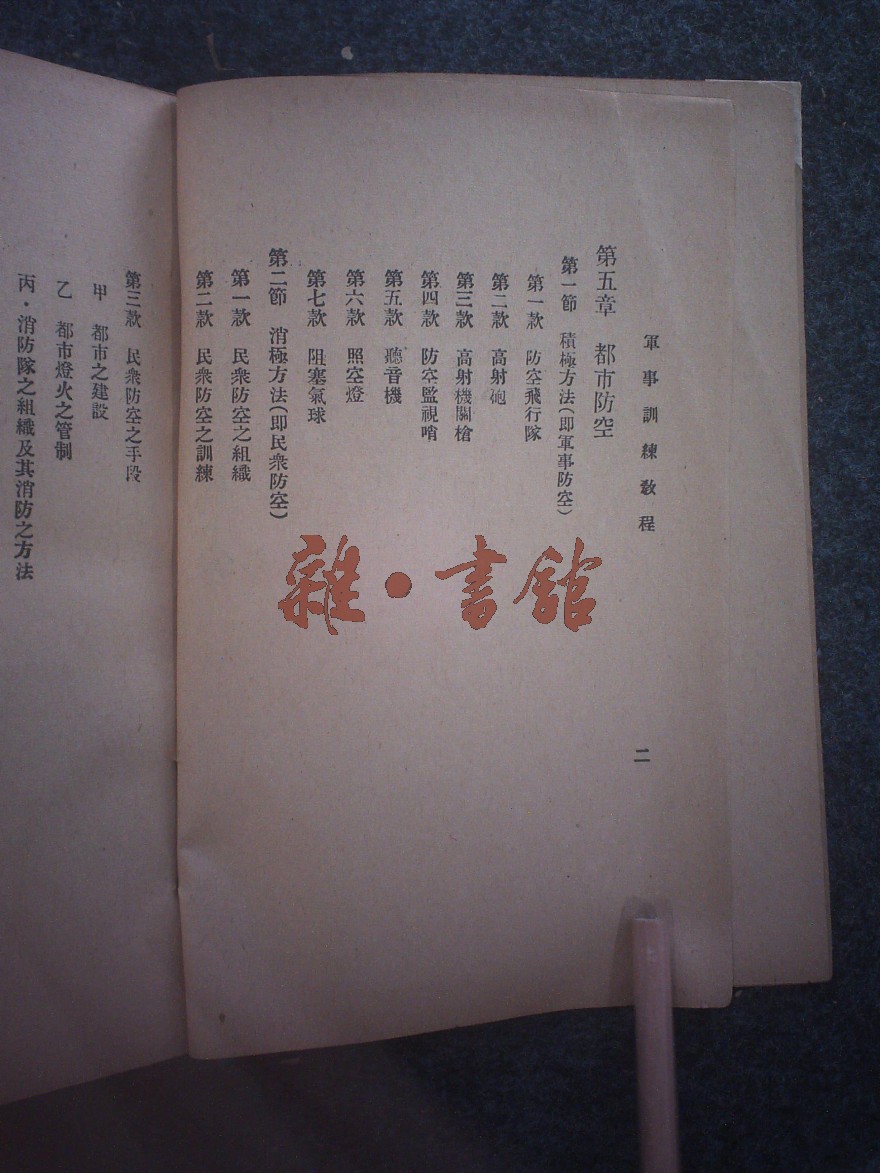 軍事訓練教程
二
第五章 都市防空
第一節 積極方法(即軍事防空)
第一款 防空飛行隊
第二款 高射砲
第三款 高射機關槍
第四款 防空監視哨
第五款 聽音機
第六款 照空燈
第七款 阻塞氣球
第二節 消極方法(即民衆防空)
第一款 民衆防空之組織
第二款 民衆防空之訓練
第三款 民衆防空之手段
甲 都市之建設
乙 都市燈火之管制
丙·消防隊之組織及其消防之方法
雜·書館